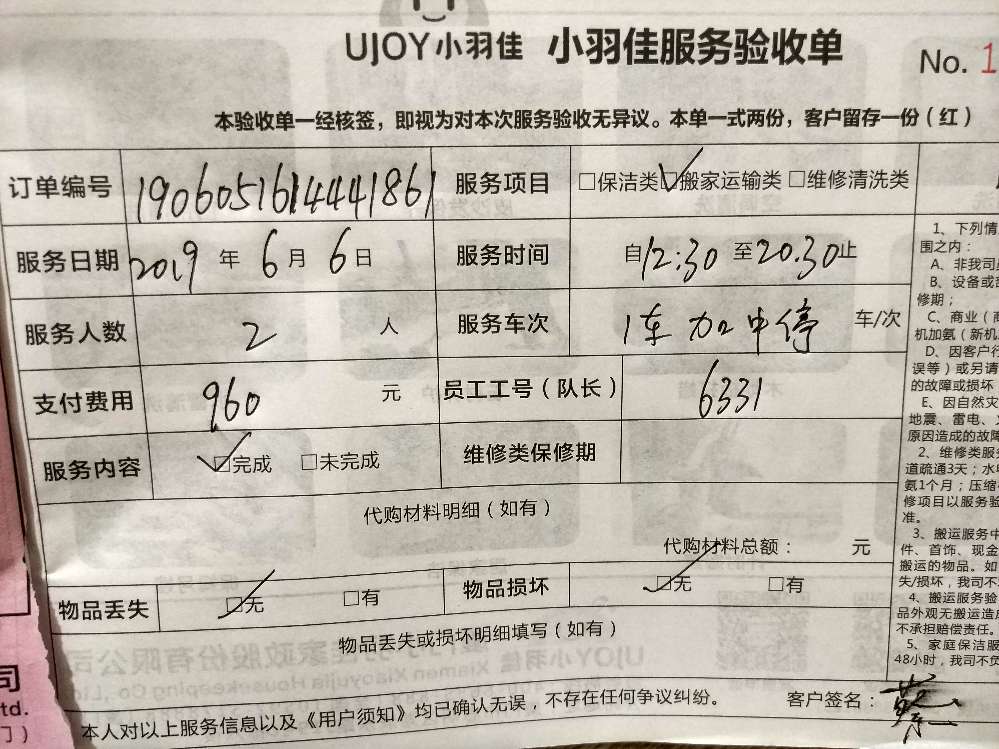 UJOY小羽佳 小羽佳服务验收单
No. 1
本验收单一经核签，即视为对本次服务验收无异议。本单一式两份，客户留存一份（红）
订单编号 1906051614441861 服务项目 □保洁类 □搬家运输类 □维修清洗类
服务日期 2019 年 6 月 6 日 服务时间 自12:30 至20.30止
服务人数 2 人 服务车次 1车加中停 车/次
支付费用 960 元 员工工号（队长） 6331
服务内容 □完成 □未完成 维修类保修期
代购材料明细（如有）
代购材料总额： 元
物品丢失 □无 □有 物品损坏 □无 □有
物品丢失或损坏明细填写（如有）
本人对以上服务信息以及《用户须知》均已确认无误，不存在任何争议纠纷。 客户签名：
1、下列情
围之内：
A、非我司
B、设备或
修期；
C、商业（商
机加氨（新机
D、因客户行
误等）或另请
的故障或损坏
E、因自然灾
地震、雷电、
原因造成的故障
2、维修类服务
道疏通3天；水电
氨1个月；压缩
修项目以服务验
准。
3、搬运服务中
件、首饰、现金
搬运的物品。如
失/损坏，我司不
4、搬运服务验
品外观无搬运造成
不承担赔偿责任。
5、家庭保洁服
48小时，我司不负
司
td.
门）